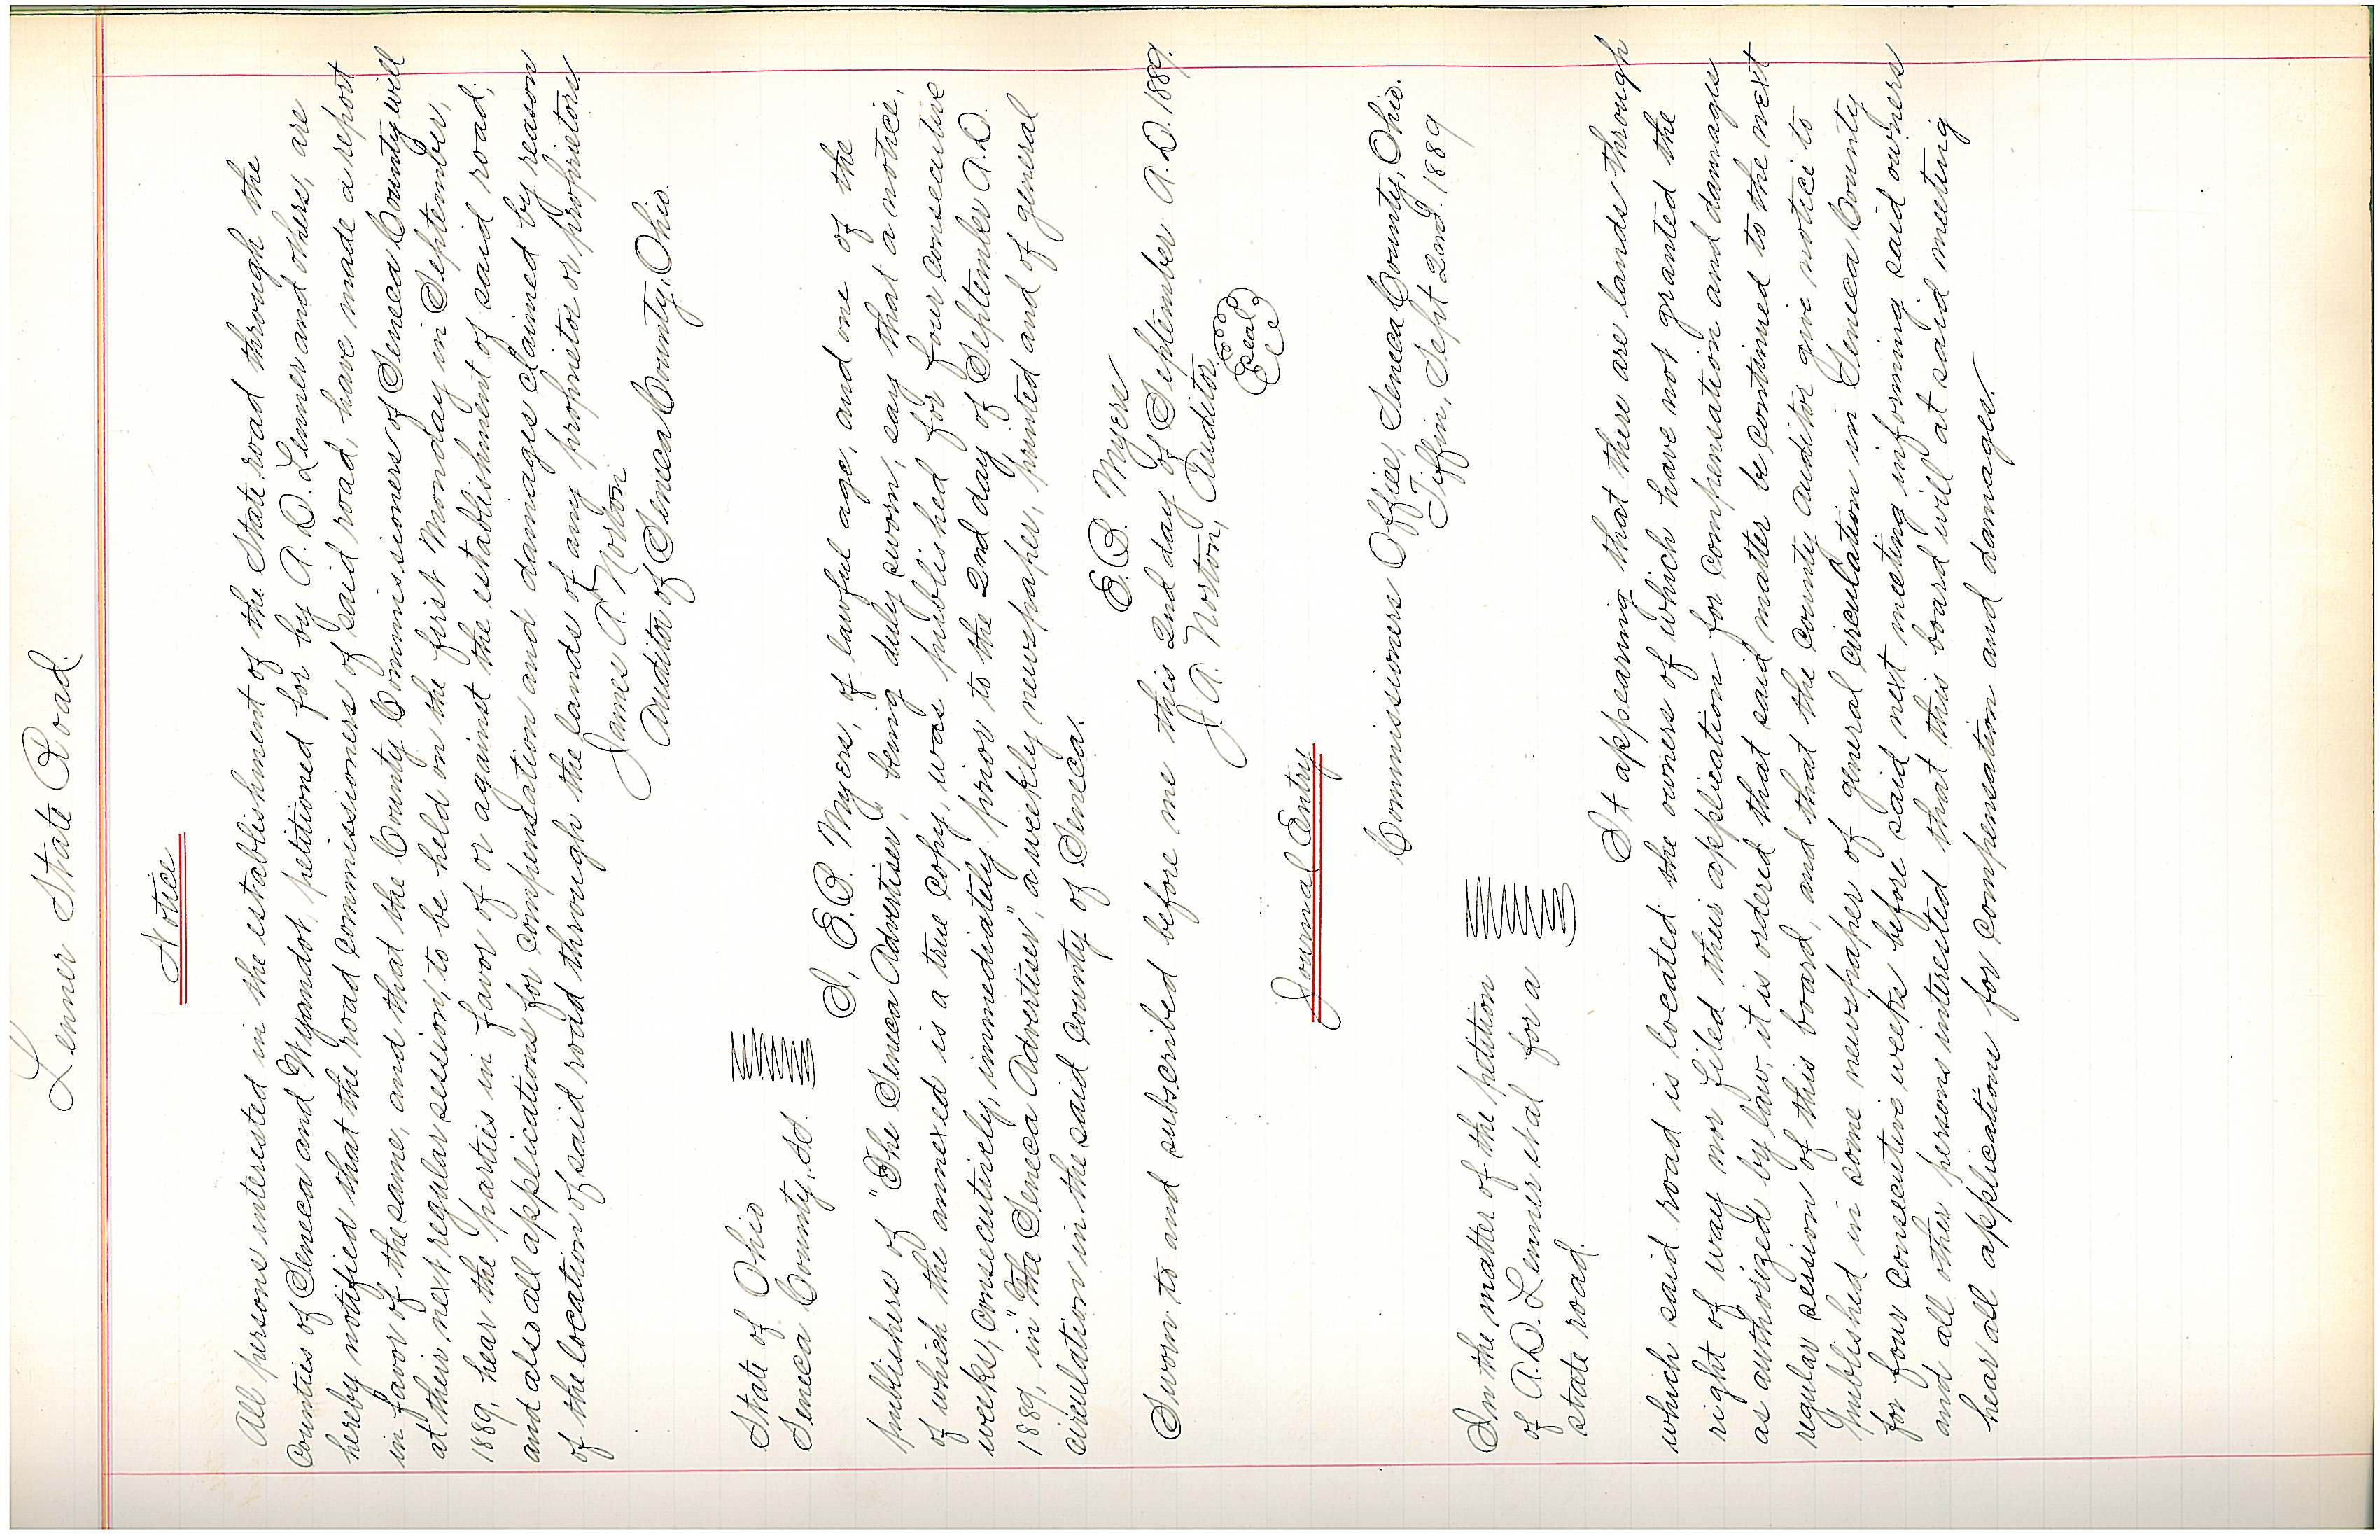 Lenner State Road.
Notice
All persons interested in the establishment of the State road through the
Counties of Seneca and Wyandot, petitioned for by A. D. Lenner and others, are
hereby notified that the road commissioners of said road, have made a report
in favor of the same, and that the County Commissioners of Seneca County will
at their next regular session, to be held on the first Monday in September,
1889, hear the parties in favor of or against the establishment of said road,
and also all applications for compensation and damages claimed by reason
of the location of said road through the lands of any proprietor or proprietors.
James A. Norton
Auditor of Seneca County, Ohio.
State of Ohio
Seneca County, ss.
I, E. B. Myers, of lawful age, and one of the
publishers of "The Seneca Advertiser", being duly sworn, say that a notice,
of which the annexed is a true copy, was published for four consecutive
weeks, consecutively, immediately prior to the 2nd day of September A.D.
1889, in "The Seneca Advertiser", a weekly newspaper, printed and of general
circulation in the said county of Seneca.
E. B. Myers
Sworn to and subscribed before me this 2nd day of September A.D. 1889.
J. A. Norton, Auditor
Seal
Journal Entry
Commissioners Office, Seneca County, Ohio.
Tiffin, Sept 2nd. 1889
In the matter of the petition
of A. D. Lenner et al for a
state road.
It appearing that there are lands through
which said road is located the owners of which have not granted the
right of way nor filed their application for compensation and damages
as authorized by law, it is ordered that said matter be continued to the next
regular session of this board, and that the county auditor give notice to
published in some newspaper of general circulation in Seneca County
for four consecutive weeks before said next meeting informing said owners
and all other persons interested that this board will at said meeting
hear all applications for compensation and damages.